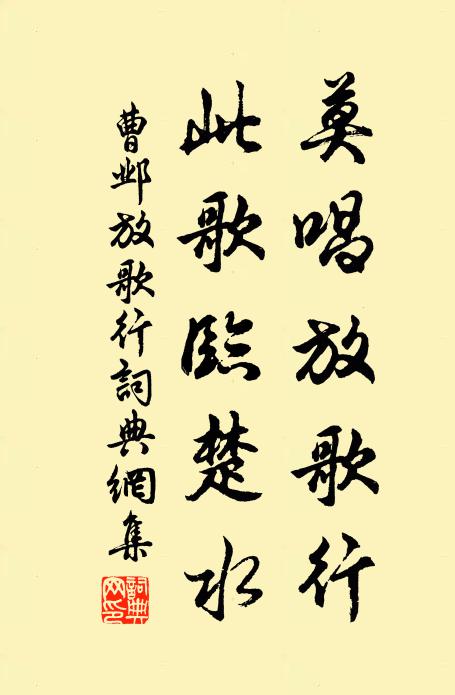 莫唱放歌行
此歌臨楚水
曹邺放歌行詞典網集
詞典网印